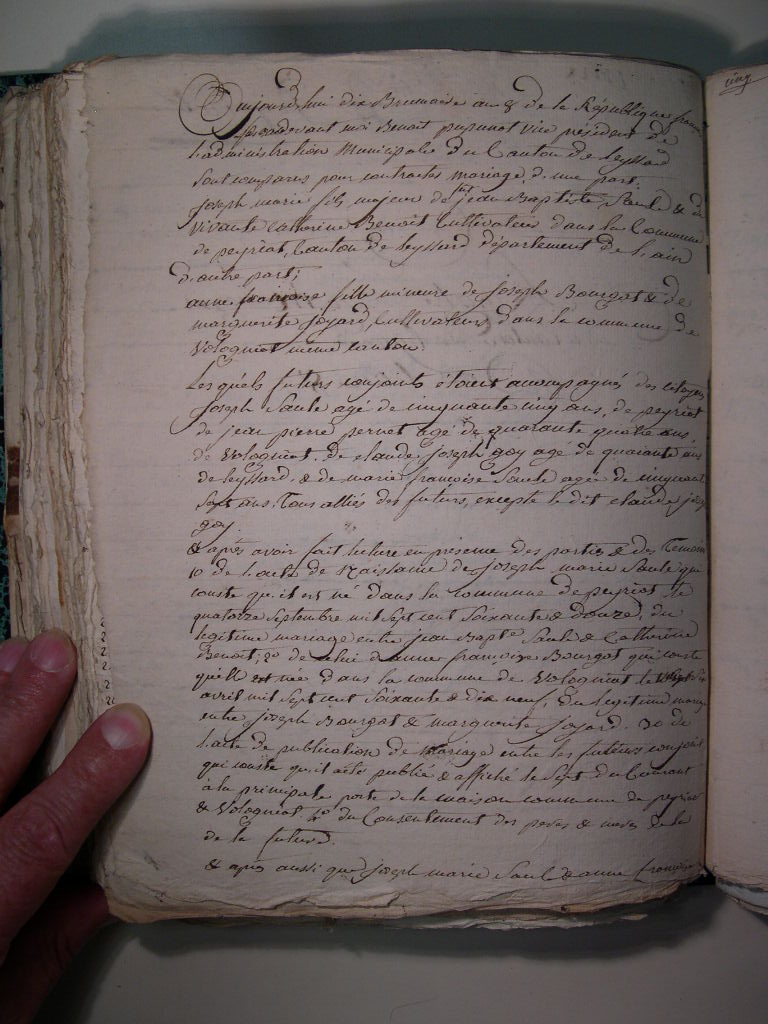 Aujourd'hui dix Brumaire an 8 de la République fran
pardevant moi Benoit pupunat vice président de
l'administration Municipale du Canton de Leyssard
Sont comparus pour contracter mariage, d'une part.
Joseph marie fils majeur de jean Baptiste Saule & de
vivante Catherine Benoit Cultivateur dans la Commune
de peyriat, Canton de Leyssard département de L'ain
d'autre part;
anne françoise fille mineure de Joseph Bourgot & de
marguerite Joyard, Cultivateurs, dans la commune de
Volognat même canton.
Lesquels futurs conjoints étoient accompagnés des citoyens
Joseph Saule agé de cinquante cinq ans, de peyriat
de jean pierre pernet agé de quarante quatre ans,
de Volognat, de claude joseph goy agé de quarante ans
de Leyssard & de marie françoise Saule agée de cinquante
Sept ans. Tous alliés des futurs, excepté le dit claude jose
goy.
& après avoir fait lecture en présence des parties & des Temoins
1o de l'acte de Naissance de Joseph marie Saule qui
conste qu'il est né dans la commune de peyriat le
quatorze Septembre mil Sept cent Soixante & douze, du
legitime mariage entre jean Bapte Saule & Catherine
Benoit; 2o de celui d'anne françoise Bourgot qui conste
qu'elle est née dans la commune de Volognat le
avril mil Sept cent Soixante & dix neuf, du legitime maria
entre Joseph Bourgot & marguerite Joyard. 3o de
l'acte de publication de Mariage entre les futurs conjoint
qui conste qu'il a été publié & affiché le Sept du Courant
à la principale porte de la maison commune de peyriat
& Volognat 4o du Consentement des peres & meres de la
de la future.
& après aussi que joseph marie Saule & anne françoise
cinq